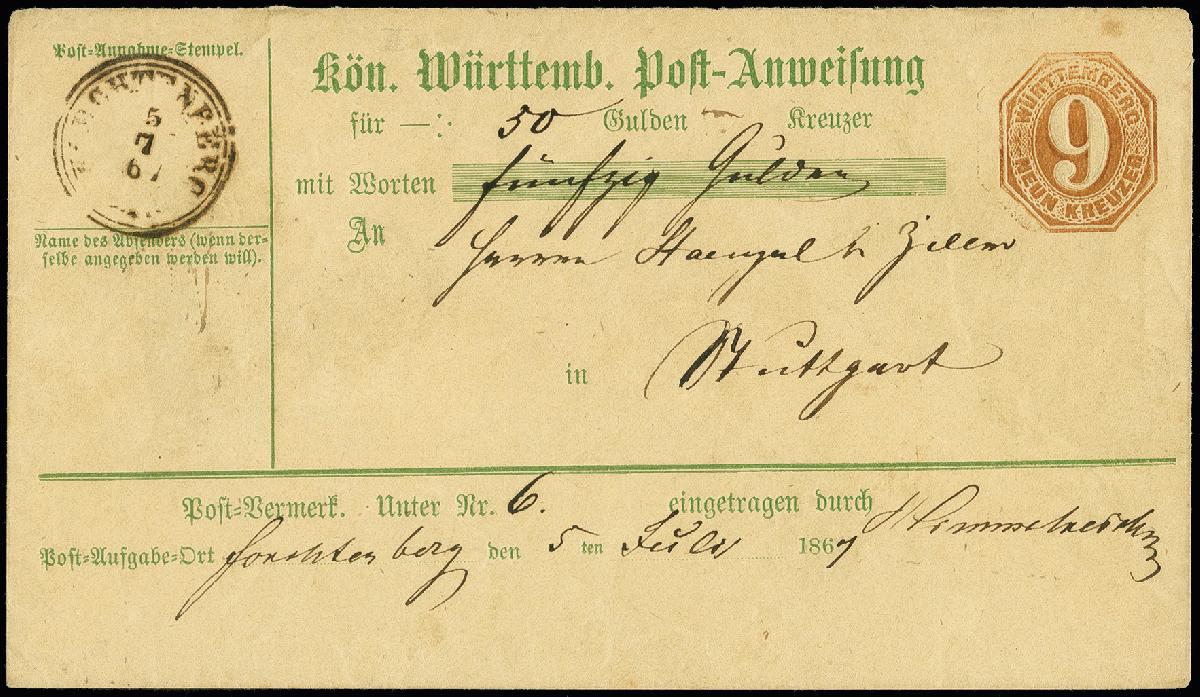 Post-Annahme-Stempel.
FORCHTENBERG
5
7
67
Name des Absenders (wenn der-
selbe angegeben werden will).
Kön. Württemb. Post-Anweisung
für —: 50 Gulden — Kreuzer
mit Worten fünfzig Gulden
An Herren Haenzel &
in Stuttgart
WÜRTTEMBERG
9
NEUN KREUZER
Post-Vermerk. Unter Nr. 6. eingetragen durch
Post-Aufgabe-Ort Forchtenberg den 5 ten Juli 1867